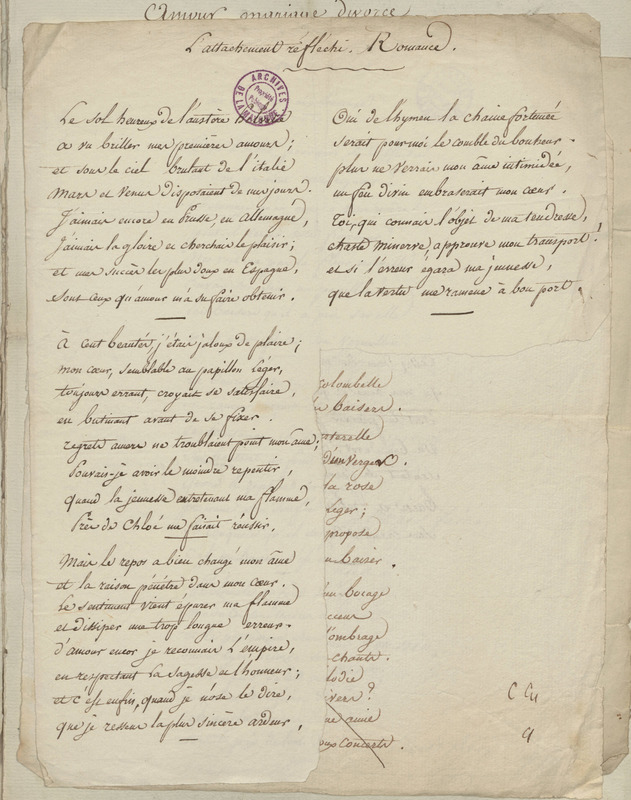 Amour mariage divorce
L'attachement réfléchi. Romance.
ARCHIVES
Le sol heureux de l'austère
a vu briller mes premières amours;
et sous le ciel brulant de l'italie
Mars et Venus disposaient de mes jours.
J'aimais encore en Prusse, en Allemagne,
J'aimais la gloire et cherchais le plaisir;
et mes succès les plus doux en Espagne,
sont ceux qu'amour m'a su faire obtenir.
À cent beautés j'étais jaloux de plaire;
mon cœur, semblable au papillon léger,
toujours errant, croyait se satisfaire,
en butinant avant de se fixer.
regrets amers ne troublaient point mon âme;
Pouvais-je avoir le moindre repentir,
quand la jeunesse entretenant ma flamme,
Près de Chloé me faisait réussir.
Mais le repos a bien changé mon âme
et la raison pénétre dans mon cœur.
Le sentiment vient épurer ma flamme
et dissiper ma trop longue erreur.
d'amour encor je reconnais l'empire,
en respectant la sagesse et l'honneur;
et c'est enfin, quand je n'ose le dire,
que je ressens la plus sincère ardeur.
Oui de l'hymen la chaine fortunée
serait pour moi le comble du bonheur.
plus ne verrais mon âme intimidée,
un feu divin embraserait mon cœur.
Toi, qui connais l'objet de ma tendresse,
chaste Minerve, approuve mon transport!
et si l'erreur égara ma jeunesse,
que la vertu me ramene à bon port.
colombelle
baisers.
d'un verger.
la rose
Léger;
propose
baiser.
bocage
cœur
l'ombrage
chante.
amie
concerts.